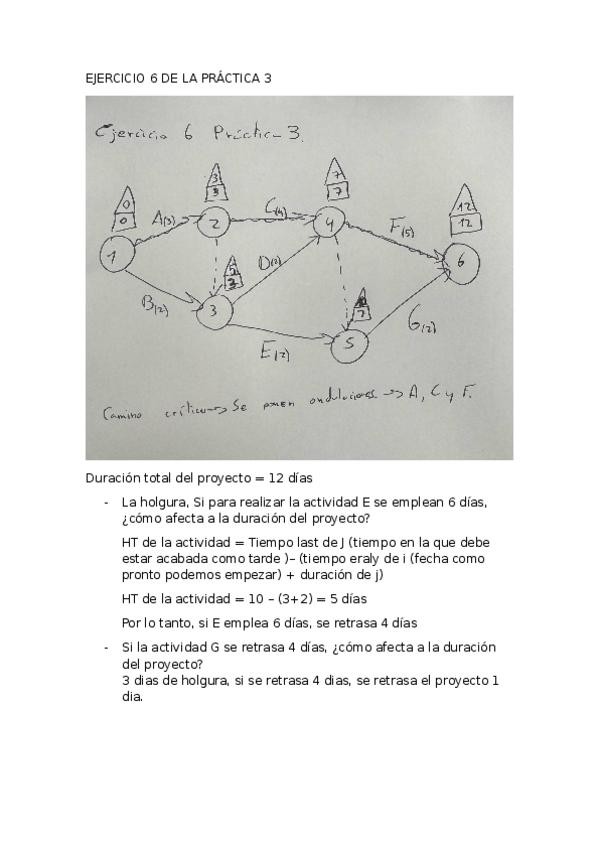 EJERCICIO 6 DE LA PRÁCTICA 3
Ejercicio 6 Práctica 3.
0
0
A(3)
3
3
2
C(4)
7
7
4
F(5)
12
12
6
1
B(2)
5
3
3
D(2)
E(2)
10
7
5
G(2)
Camino crítico → Se ponen ondulaciones → A, C y F.
Duración total del proyecto = 12 días
- La holgura, Si para realizar la actividad E se emplean 6 días,
¿cómo afecta a la duración del proyecto?
HT de la actividad = Tiempo last de J (tiempo en la que debe
estar acabada como tarde )– (tiempo eraly de i (fecha como
pronto podemos empezar) + duración de j)
HT de la actividad = 10 – (3+2) = 5 días
Por lo tanto, si E emplea 6 días, se retrasa 4 días
- Si la actividad G se retrasa 4 días, ¿cómo afecta a la duración
del proyecto?
3 dias de holgura, si se retrasa 4 dias, se retrasa el proyecto 1
dia.